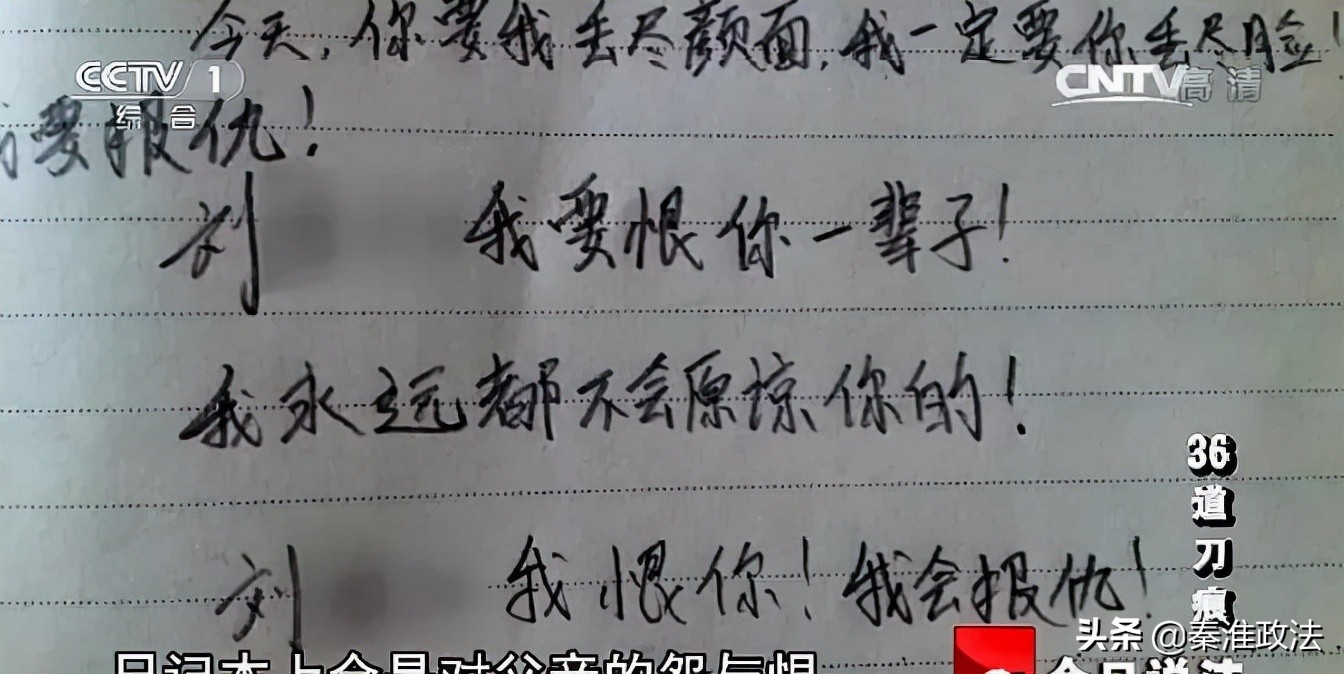 今天，你要我丢尽颜面，我一定要你丢尽脸！
CCTV 1
综合
CNTV高清
我要报仇！
刘 我要恨你一辈子！
我永远都不会原谅你的！
刘 我恨你！我会报仇！
36道刀痕
头条 @秦淮政法
日记本上全是对父亲的怨与恨
今日说法